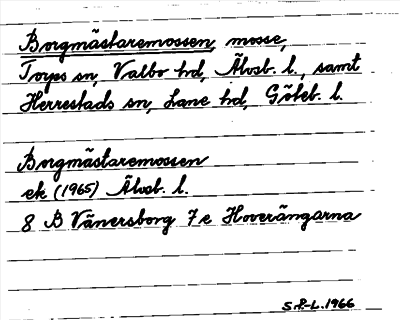 Borgmästaremossen, mosse,
Torps sn, Valbo hd, Älvsb. l., samt
Herrestads sn, Lane hd, Göteb. l.
Borgmästaremossen
ek (1965) Älvsb. l.
8 B Vänersborg 7e Hoverängarna
S.P.-L. 1966